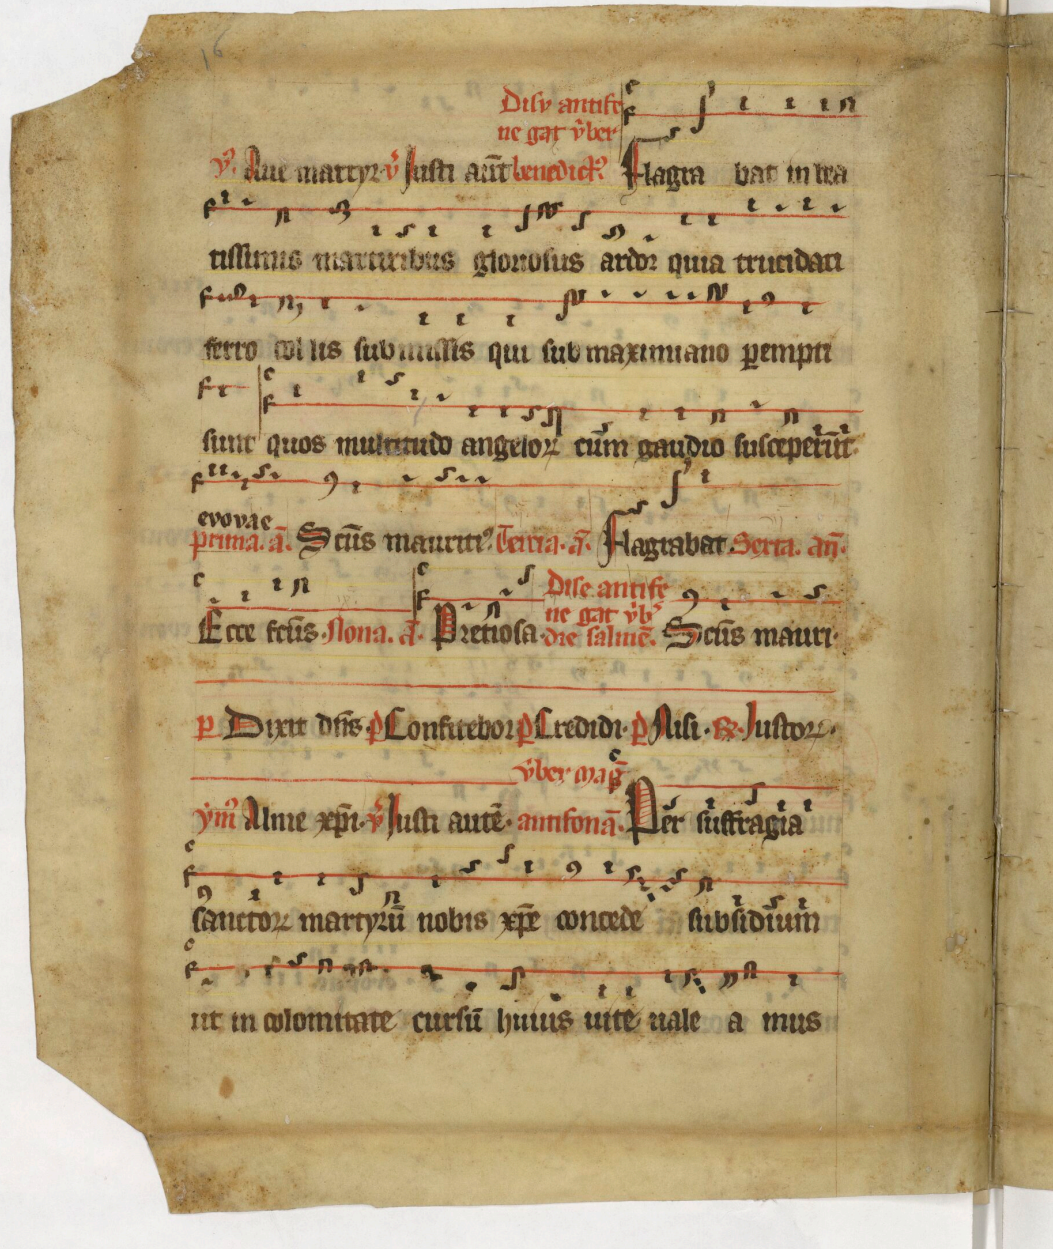 16
Disv antife
ne gat v̄ber
ỹ. Aue martyr. v̄ Justi aūt benedict9 Flagra bat in bea
tissimis martiribus gloriosus ardor quia trucidati
ferro collis submissis qui sub maximiano ꝑempti
sunt quos multitudo angeloꝝ cūm gaudio susceperūt.
evovae
prima. ā. Scūs mauriti9. Tercia. ā. Flagrabat. Sexta. añ.
Dise antife
ne gat v̄b
Ecce fcūs. Nona. ā. Preciosa. die salmē. Scūs mauri.
ꝑ Dixit dn̄s. ꝑ Confitebor ꝑ Credidi. ꝑ Nisi. Justoꝝ.
v̄ber mag̃
ym̄ Alme xp̄i. v̄ Justi autē. antifonā. Per suffragia
sanctoꝝ martyrū nobis xp̄e concede subsidium
ut in colomitate cursū huius uite uale a mus